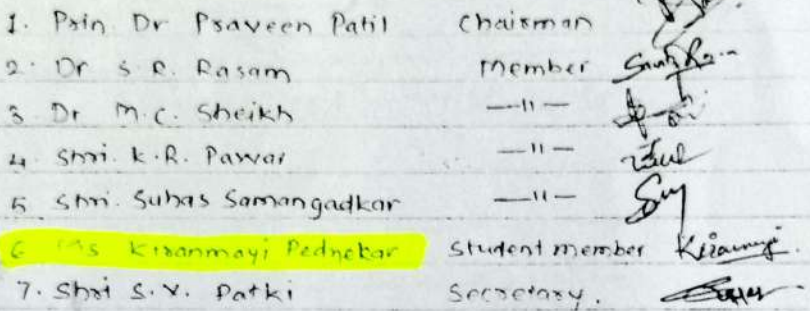 1. Prin. Dr Praveen Patil Chairman
2. Dr S. R. Rasam Member
3 Dr M. C. Sheikh —11—
4. Shri. K. R. Pawar —11—
5 Shri. Suhas Samangadkar —11—
6 Ms Kiranmayi Pednekar Student member Kiranmayi.
7. Shri S. V. Patki Secretary.